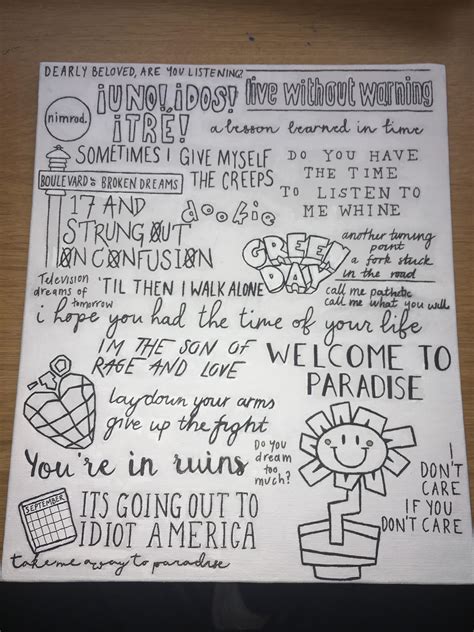 DEARLY BELOVED, ARE YOU LISTENING?
nimrod.
¡UNO! ¡DOS!
¡TRE!
live without warning
a lesson learned in time
SOMETIMES I GIVE MYSELF
THE CREEPS
DO YOU HAVE
THE TIME
TO LISTEN TO
ME WHINE
BOULEVARD of BROKEN DREAMS
17 AND
STRUNG OUT
ON CONFUSION
dookie
GREEN
DAY
another turning
point
a fork stuck
in the road
Television
dreams of
tomorrow
'TIL THEN I WALK ALONE
call me pathetic
call me what you will
i hope you had the time of your life
I'M THE SON OF
RAGE AND LOVE
WELCOME TO
PARADISE
lay down your arms
give up the fight
You're in ruins
Do you
dream
too
much?
I
DON'T
CARE
IF YOU
DON'T CARE
SEPTEMBER
ITS GOING OUT TO
IDIOT AMERICA
take me away to paradise